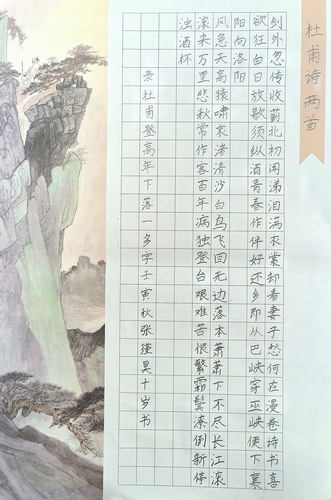 杜甫诗两首
剑外忽传收蓟北初闻涕泪满衣裳却看妻子愁何在漫卷诗书喜
欲狂白日放歌须纵酒青春作伴好还乡即从巴峡穿巫峡便下襄
阳向洛阳
风急天高猿啸哀渚清沙白鸟飞回无边落木萧萧下不尽长江滚
滚来万里悲秋常作客百年病独登台艰难苦恨繁霜鬓潦倒新停
浊酒杯
录杜甫登高年下落一多字壬寅秋张瑾昊十岁书